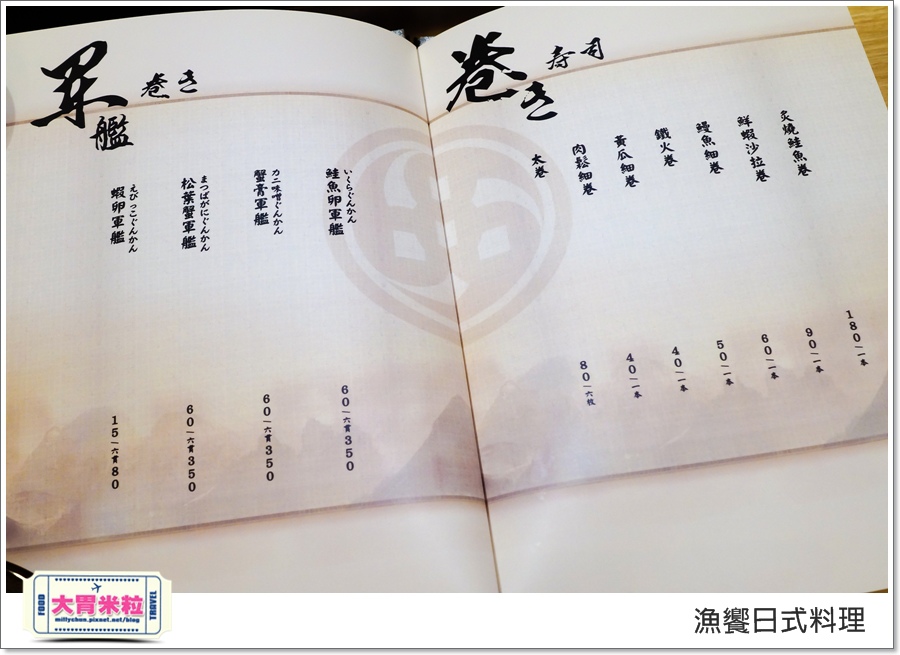 巻き寿司
炙燒鮭魚卷
180/一本
鮮蝦沙拉卷
90/一本
鰻魚細卷
60/一本
鐵火卷
50/一本
黃瓜細卷
40/一本
肉鬆細卷
40/一本
太卷
80/六枚
軍艦巻き
いくらぐんかん
鮭魚卵軍艦
60/六貫350
カニ味噌ぐんかん
蟹膏軍艦
60/六貫350
まつばがにぐんかん
松葉蟹軍艦
60/六貫350
えびっこぐんかん
蝦卵軍艦
15/六貫80
FOOD
大胃米粒
millychun.pixnet.net/blog
TRAVEL
漁饗日式料理